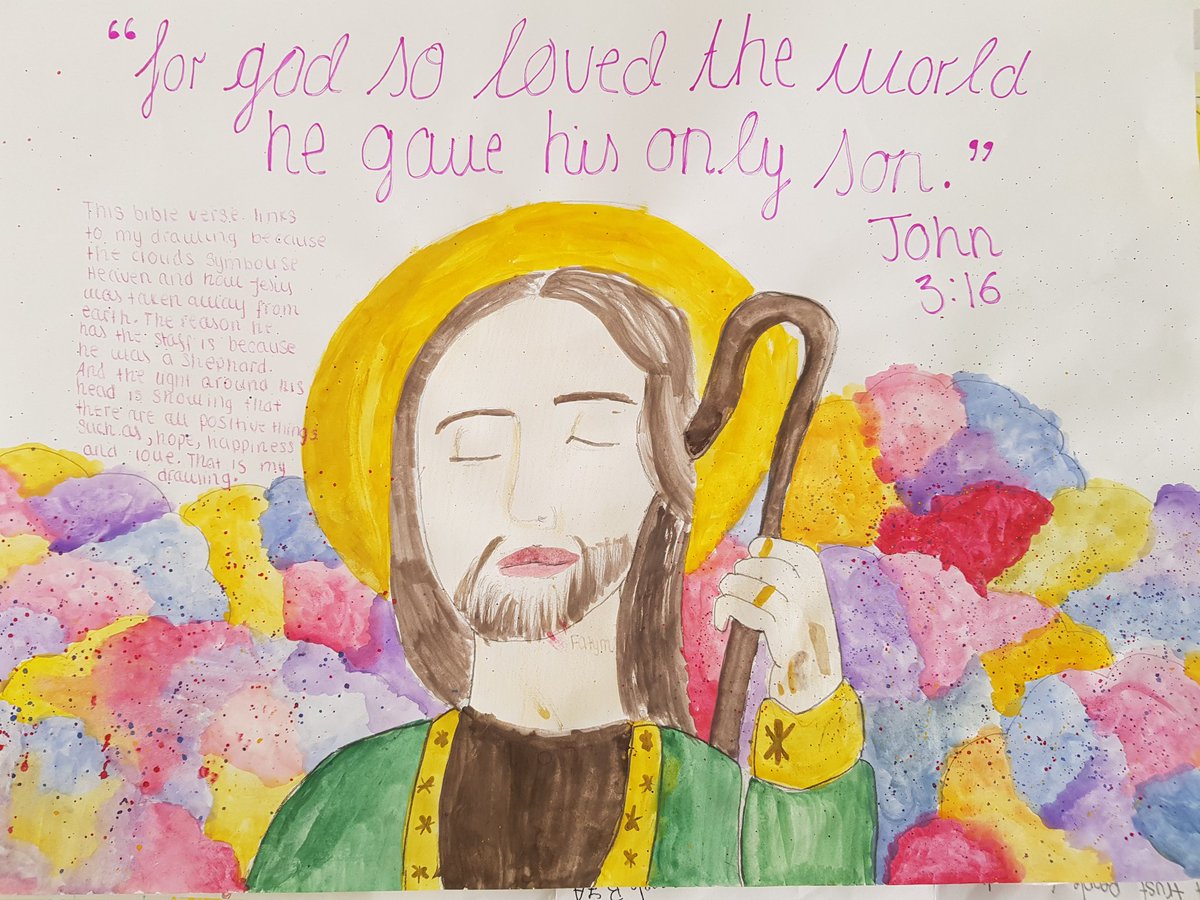 “for god so loved the world
he gave his only son.”
John
3:16
This bible verse links
to my drawing because
the clouds symbolise
Heaven and how Jesus
was taken away from
earth. The reason he
has the staff is because
he was a shephard.
And the light around his
head is showing that
there are all positive things
such as, hope, happiness
and love. That is my
drawing.